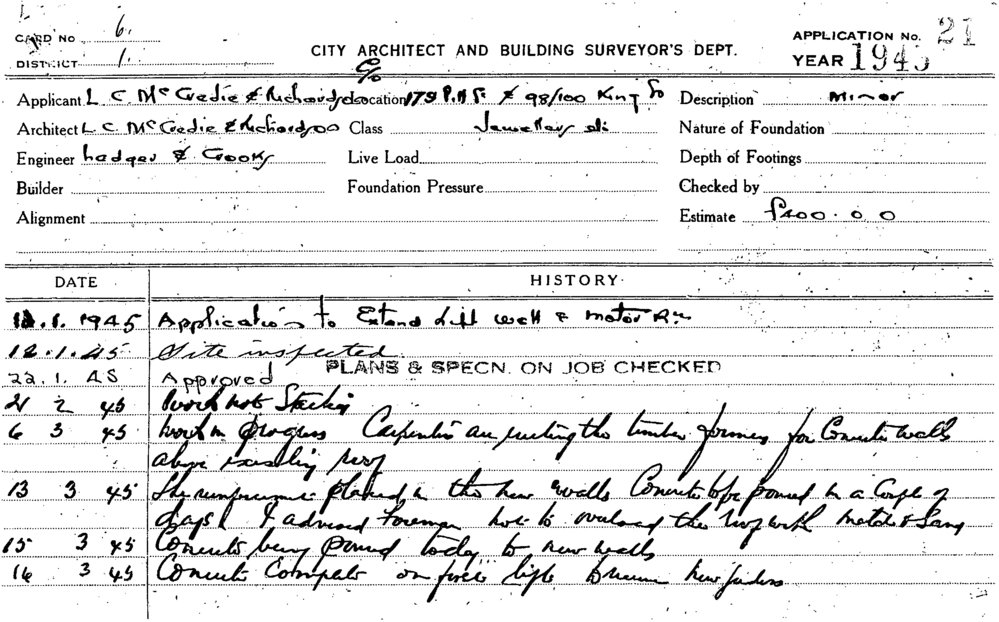 CARD No 6.
DISTRICT 1.
CITY ARCHITECT AND BUILDING SURVEYOR'S DEPT.
APPLICATION No. 21
YEAR 1945
Applicant L C McCredie & Richardson
C/o
Location 179 & 98/100 King St
Description Minor
Architect L C McCredie & Richardson
Class
Nature of Foundation
Engineer & Crooks
Live Load
Depth of Footings
Builder
Foundation Pressure
Checked by
Alignment
Estimate £400.0.0
DATE HISTORY
1.1945 Application to Extend Lift well & motor Rm
12.1.45 Site inspected
PLANS & SPECN. ON JOB CHECKED
22.1.45 Approved
2 45 Work not Started
6 3 45 Work in progress Carpenters are the timber for Concrete walls
above existing roof
13 3 45 The placed in the new walls Concrete to be poured in a Couple of
days I advised Foreman not to overload the roof with metal & Sand
15 3 45 Concrete being poured today to new walls
16 3 45 Concrete on new